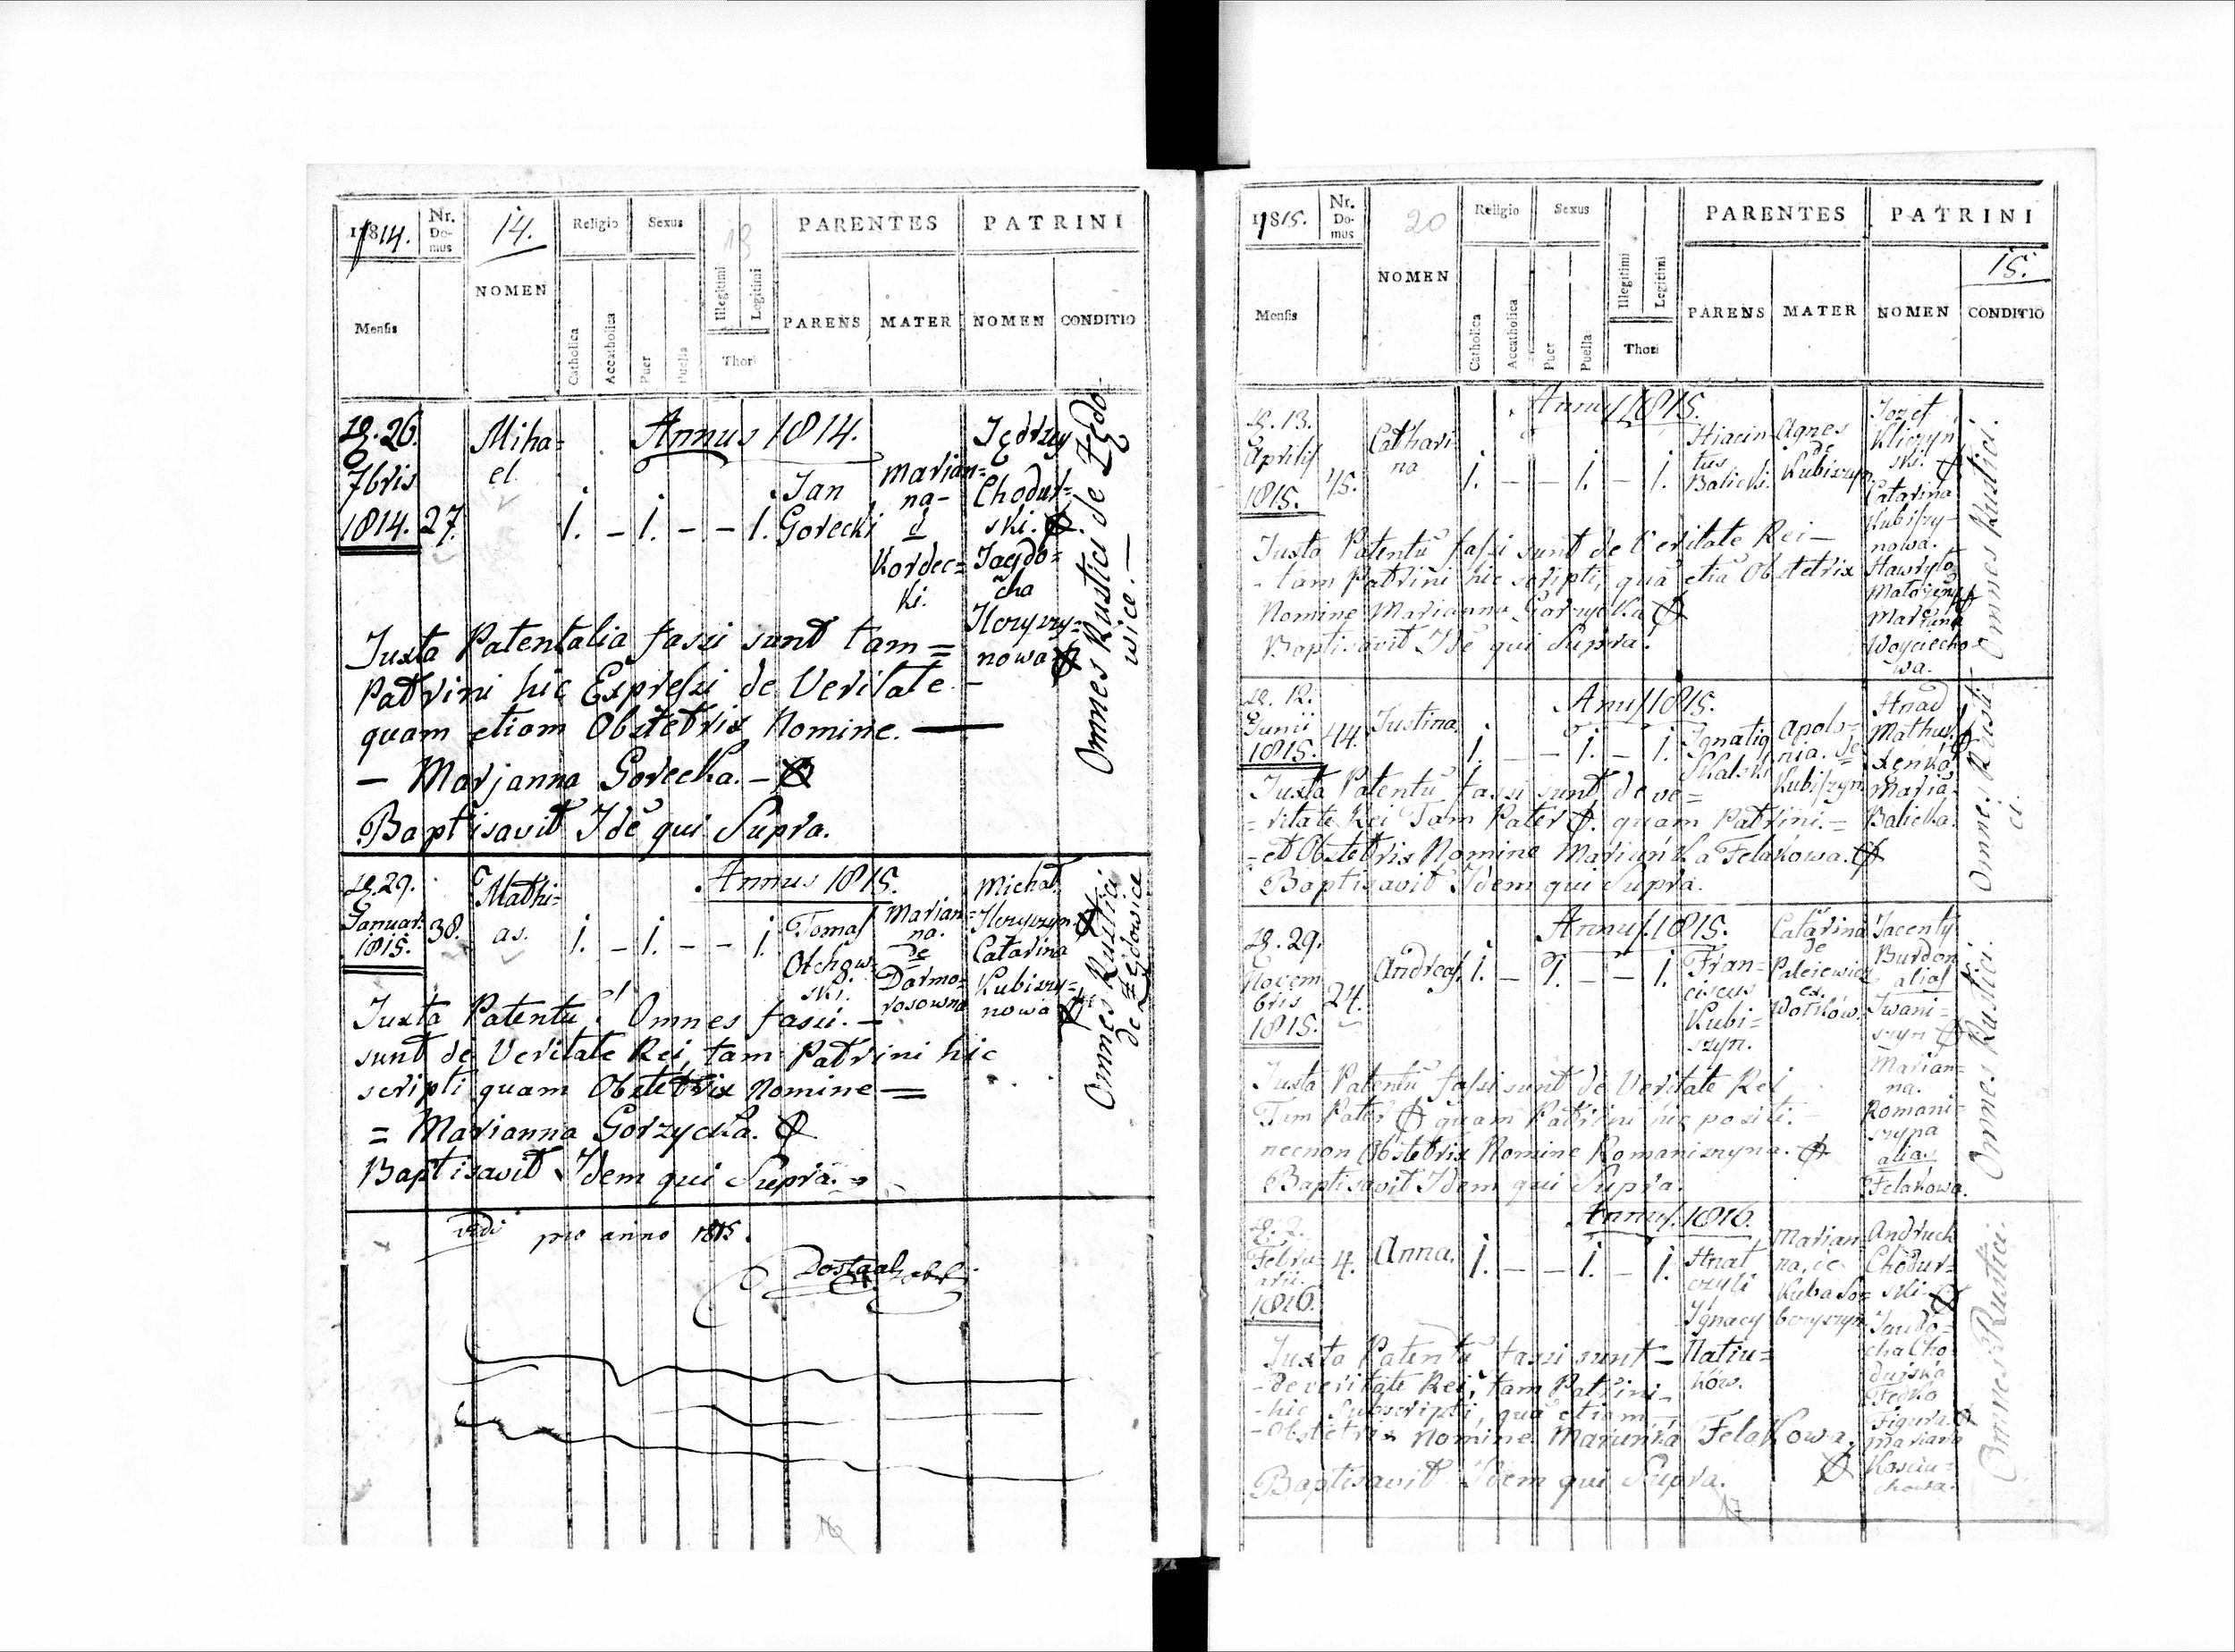 1814.
Nr. Do- mus
14.
Religio
Sexus
PARENTES
PATRINI
Mensis
NOMEN
Catholica
Accatholica
Puer
Puella
Illegitimi
Legitimi
Thori
PARENS
MATER
NOMEN
CONDITIO
D. 26.
7bris
1814.
27.
Miha=
el
Annus 1814.
1. – 1. – – 1.
Jan
Gorecki
Marian=
na
Kordec=
ki.
Jędrzy
Chodur=
ski.
Jaepdo=
cha
nowa
Omnes Rustici de
wice. —
Juxta Patentalia fassi sunt tam =
Patrini hic Expressi de Veritate –
quam etiam Obstetrix Nomine. —
– Marjanna Gorecka. –
Baptisavit Idē qui Supra.
D. 29.
Januar.
1815.
38.
Mathi=
as.
Annus 1815.
1. – 1. – – 1.
Tomas
ski.
Marian=
na.
de
Darmo=
rosowna
Michał
Catarina
Kubiszy=
nowa
Omnes Rustici
de
Juxta Patentū Omnes fassi. –
sunt de Veritate Rei, tam Patrini hic
scripti quam Obstetrix Nomine =
= Marianna Gorzycka.
Baptisavit Idem qui Supra. =
vidi pro anno 1815.
1815.
Nr. Do- mus
20
Religio
Sexus
PARENTES
PATRINI
15.
Mensis
NOMEN
Catholica
Accatholica
Puer
Puella
Illegitimi
Legitimi
Thori
PARENS
MATER
NOMEN
CONDITIO
D. 13.
Aprilis
1815.
45.
Cathari
na
Annus 1815.
1. – – 1. – 1.
Hiacin
tus
Balicki.
Agnes
de
Kubiszyn.
Jozef
Kliczyn
ski.
Catarina
Kubiszy–
nowa.
Hawryło
Maryana
Woyciecho
wa.
Omnes Rustici.
Juxta Patentū fassi sunt de Veritate Rei –
– tam Patrini hic scripti, quā etiā Obstetrix
Nomine Marianna Gorzycka
Baptisavit Idē qui Supra.
D. 12.
Junii
1815.
44.
Justina.
Annus 1815.
1. – – 1. – 1.
Ignatiq
Skalski
Apolo=
nia. de
Kubiszyn
Hnad
Maria.
Balicka.
Omnes Rusti
ci.
Juxta Patentū fassi sunt de ve=
= ritate Rei Tam Pater quam Patrini. =
– et Obstetrix Nomine Mariańka Felakowa.
Baptisavit Idem qui Supra.
D. 29.
Novem
bris
1815.
24.
Andreas.
Annus 1815.
1. – 1. – – 1.
Fran=
ciscus
Kubi=
szyn.
Catarina
de
Jacenty
Burdon
alias
Iwani=
szyn
Marian=
na.
Romani=
szyna
alias
Felakowa.
Omnes Rustici.
Juxta Patentū fassi sunt de Veritate Rei
Tam Pater quam Patrini hic positi.
necnon Obstetrix Nomine Romaniszyna.
Baptisavit Idem qui Supra.
D. 2.
Febru=
arii.
1816.
4.
Anna.
Annus 1816.
1. – – 1. – 1.
Hnat
czyli
Ignacy
Natiu=
ków.
Marian=
na, de
Andruch
Chodur=
ski.
cha Cho
durska
Fedko
Figura.
Mariana
Omnes Rustici.
Juxta Patentū fassi sunt –
– de veritate Rei, tam Patrini –
– hic subscripti, quā etiam
– Obstetrix Nomine Mariunka Felakowa.
Baptisavit Idem qui Supra.